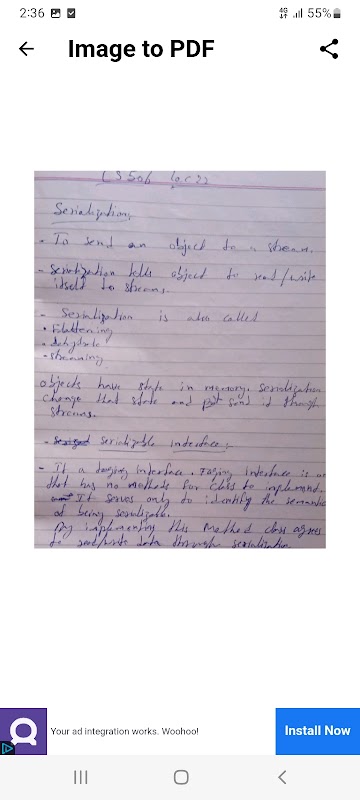 2:36
4G
55%
Image to PDF
CS506 lec 22
Serialization,
- To send an object to a stream.
- Serialization tells object to read/write
itself to streams.
- Serialization is also called
• flattening
• dehydrate
- streaming
objects have state in memory. Serialization
change that state and send it through
streams.
- serializable interface :
- It a taging interface. Taging interface is
that has no methods for class to implement.
It serves only to identify the semantics
of being serializable.
By implementing this method class agrees
to read/write data through serialization
Your ad integration works. Woohoo!
Install Now